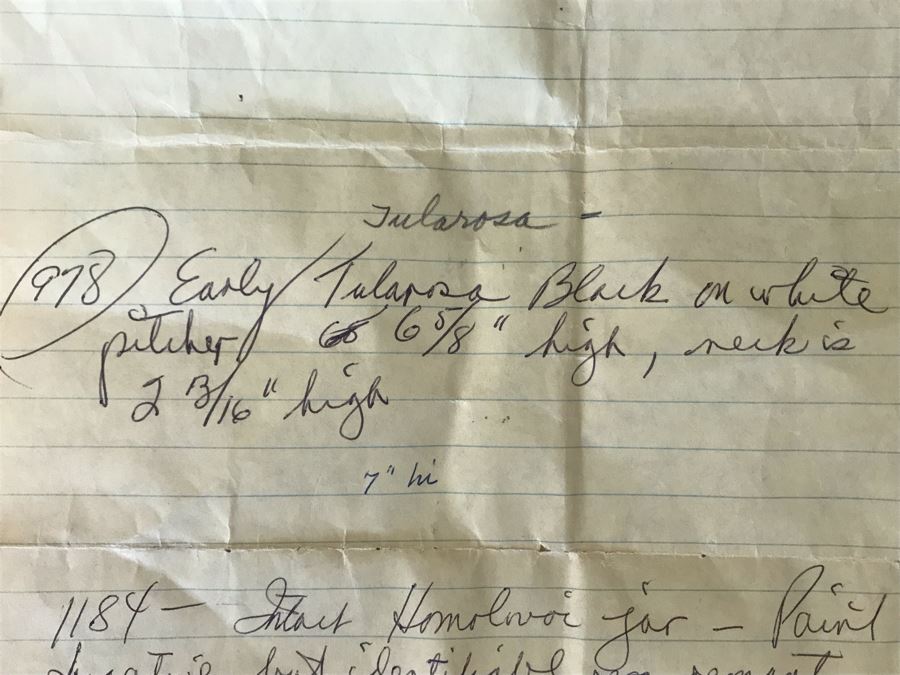 Tularosa -
978 Early / Tularosa Black on white
pitcher 6 5/8" high, neck is
2 13/16" high
7" hi
1184 - Intact Homolovoi jar - Paint
but identifiable